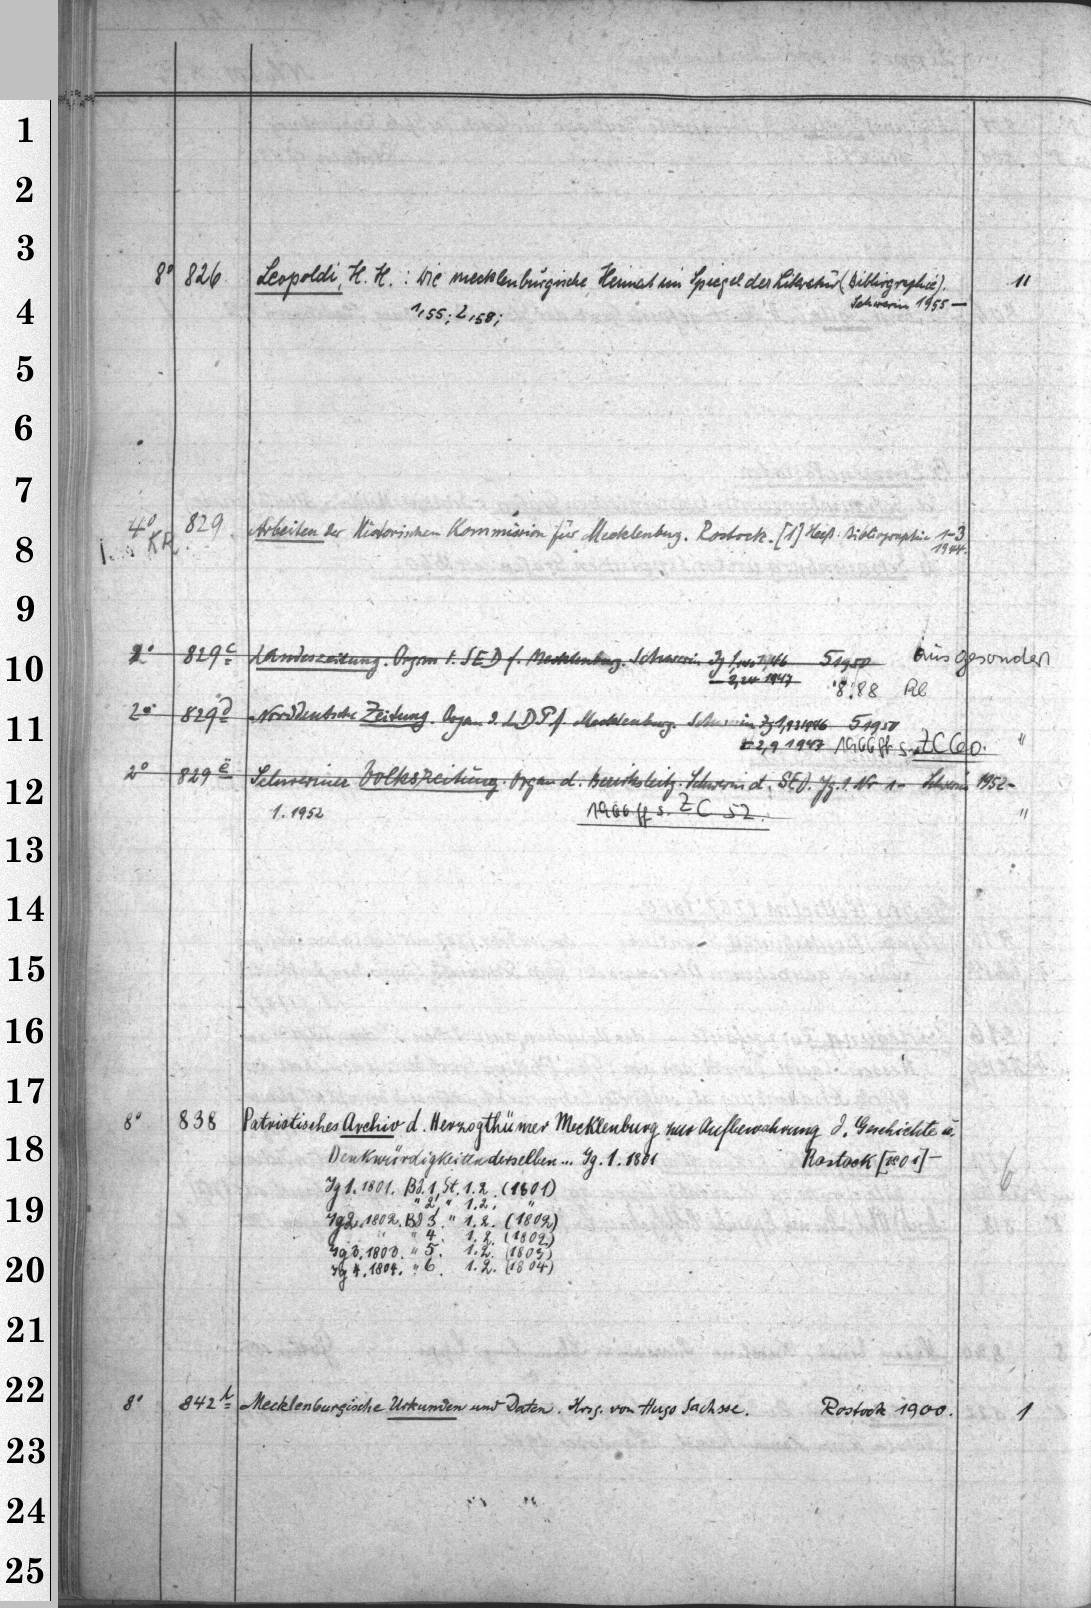 1
2
3
8° 826 Leopoldi, H. H. : Die mecklenburgische Heimat im Spiegel der Literatur (Bibliographie). "
Schwerin 1955 —
4
1,55; 2,58;
5
6
7
4° 829 Arbeiten der Historischen Kommission für Mecklenburg. Rostock. [1] Heß. Bibliographie 1-3
1944.
KR
8
9
2° 829 c Landeszeitung. Organ d. SED f. Mecklenburg. Schwerin Jg 1, 1946 5 1950 ausgesondert
10
2, 24 1947 8.88
2° 829 d Norddeutsche Zeitung. Organ d. LDP f. Mecklenburg. Schwerin Jg 1, 1946 5 1950
11
2, 9 1947 1966 ff s. ZC 60. "
2° 829 e Schweriner Volkszeitung. Organ d. Bezirksleitg. Schwerin d. SED. Jg. 1. Nr 1- Schwerin 1952-
12
1. 1952 1966 ff s. ZC 52. "
13
14
15
16
17
8° 838 Patriotisches Archiv d. Herzogthümer Mecklenburg zur Aufbewahrung d. Geschichte u.
18
Denkwürdigkeiten derselben... Jg. 1. 1801 Rostock [1801]- 6
Jg 1. 1801. Bd. 1, St. 1.2. (1801)
" 2, " 1.2. "
19
Jg 2. 1802. Bd 3. " 1.2. (1802)
" 4. 1.2. (1802)
Jg 3. 1803. " 5. 1.2. (1803)
20
Jg 4. 1804. " 6. 1.2. (1804)
21
22
8° 842 Mecklenburgische Urkunden und Daten. Hrsg. von Hugo Sachsse. Rostock 1900. 1
23
24
25